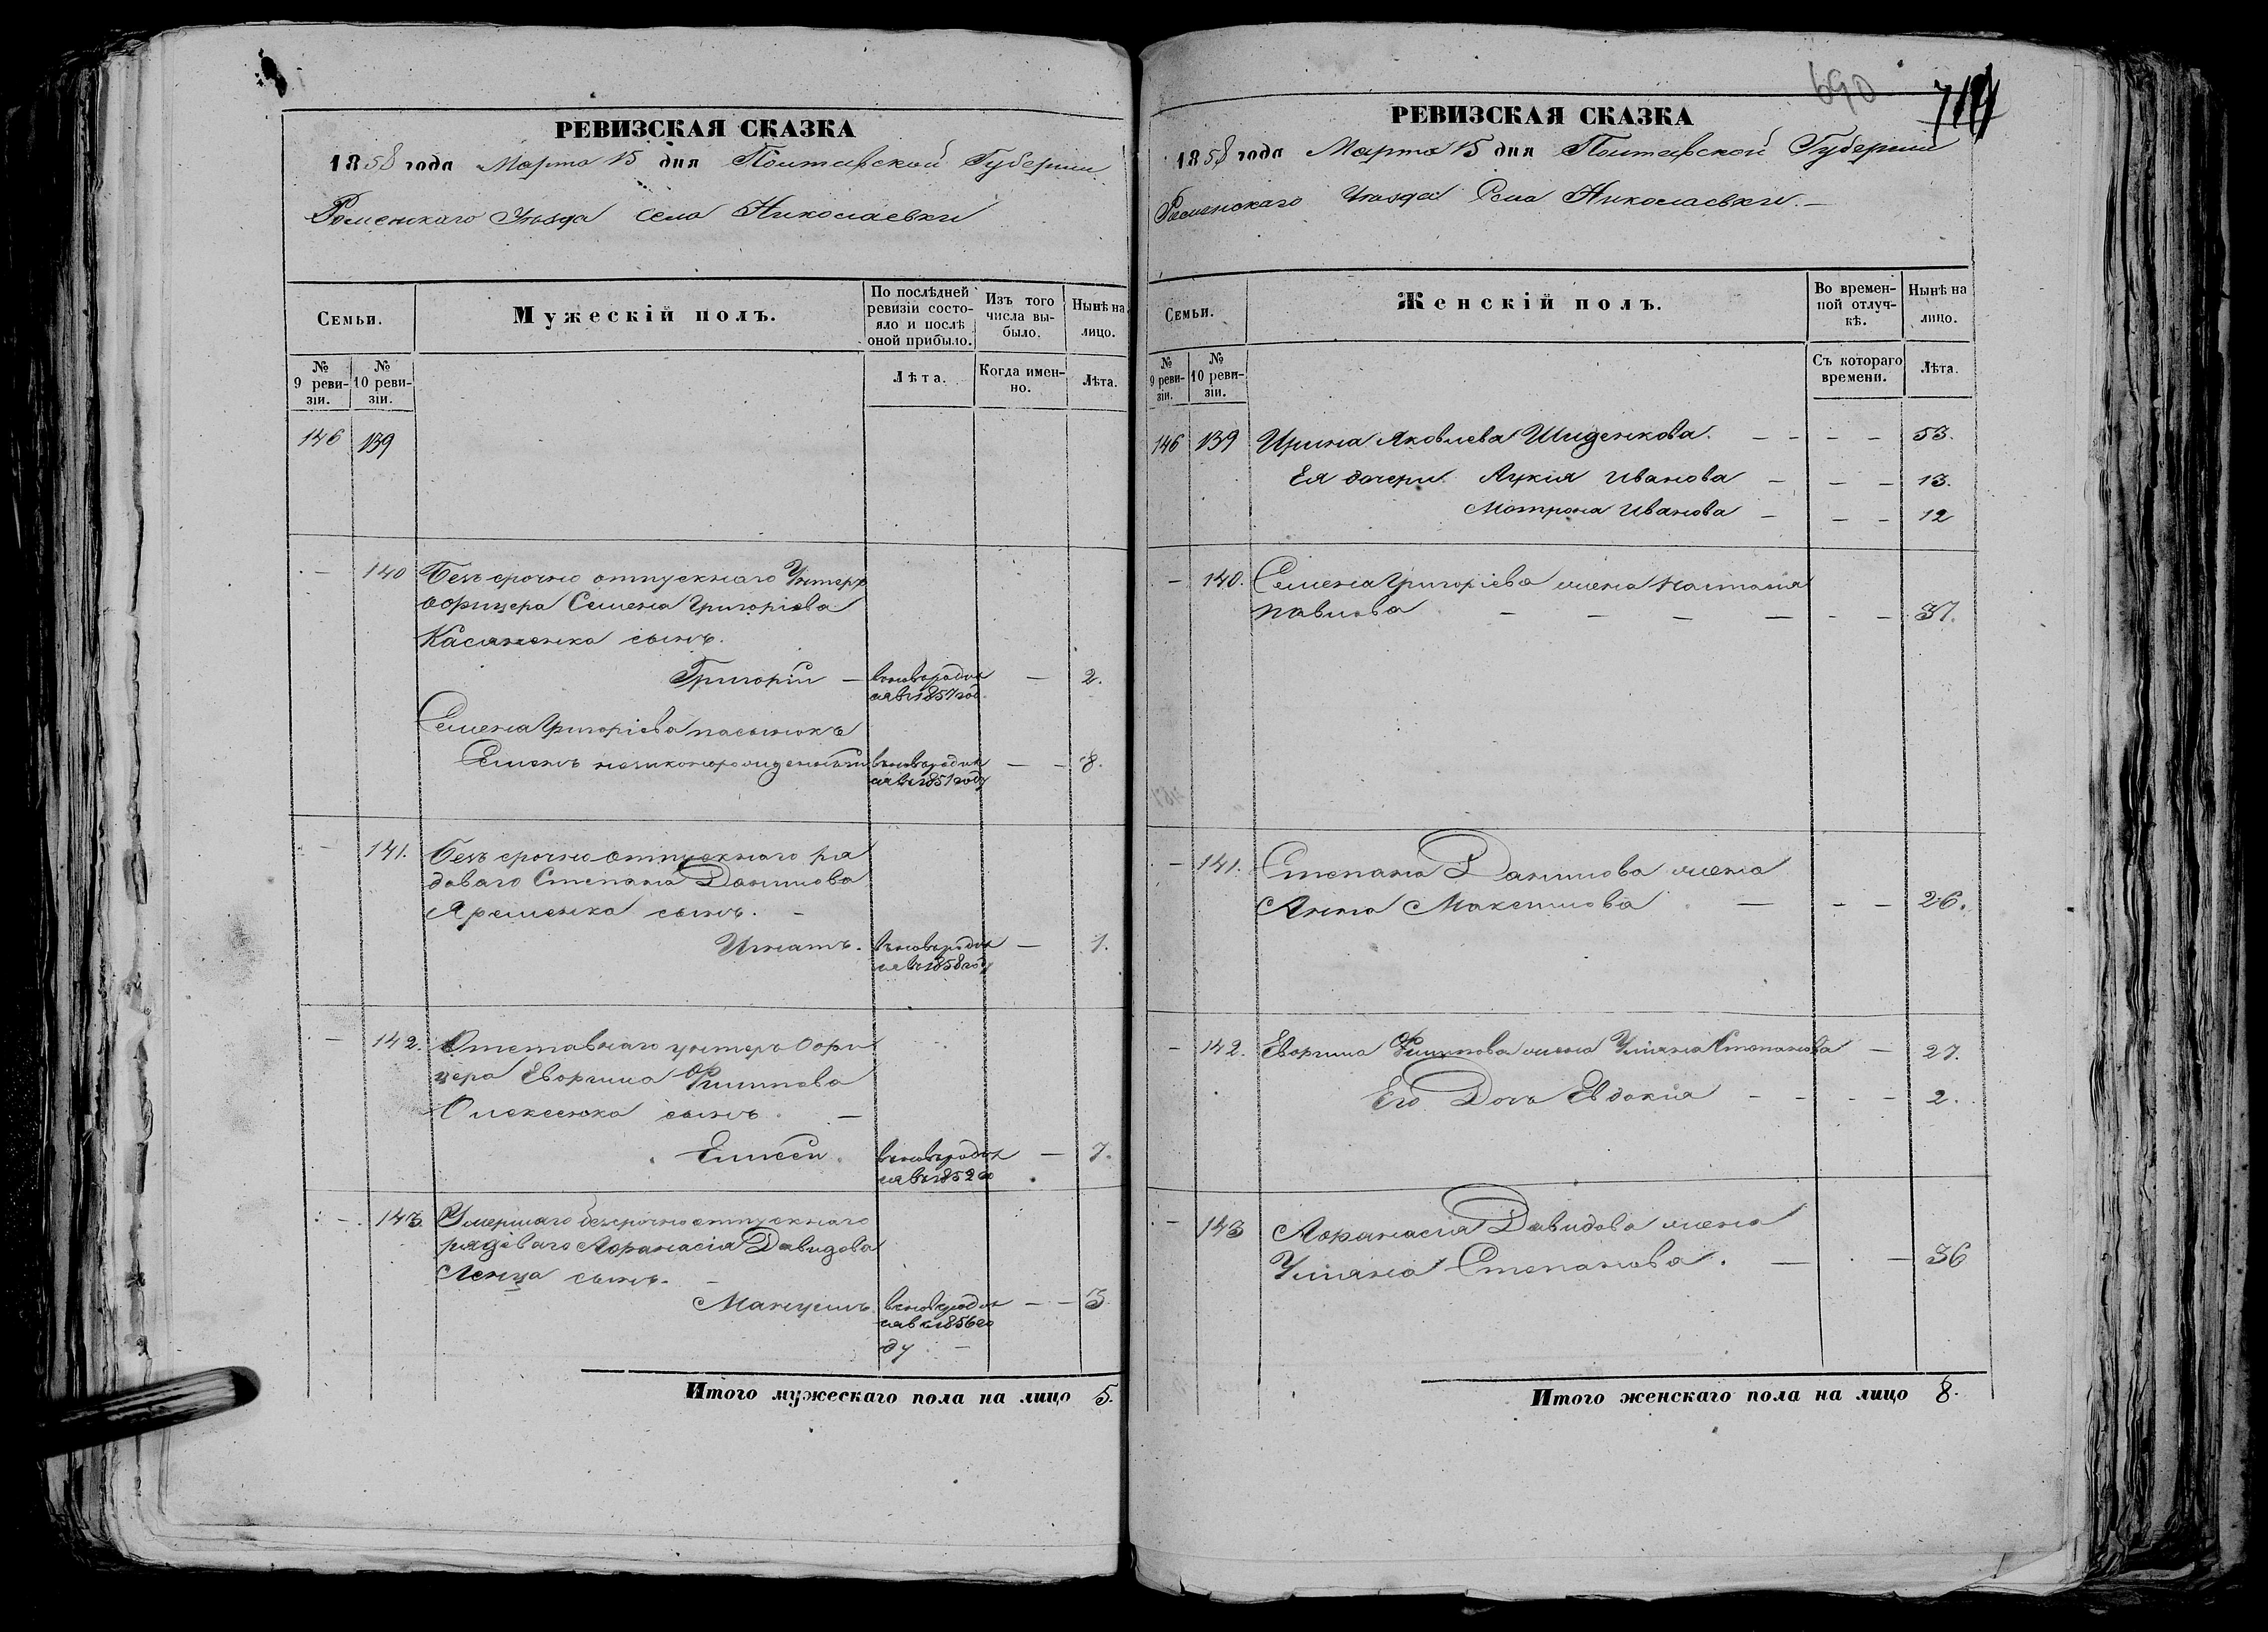 РЕВИЗСКАЯ СКАЗКА
1858 года Марта 15 дня Полтавской Губернии
Роменскаго Уѣзда села Николаевки
Семьи.
Мужескій полъ.
По послѣдней ревизіи состояло и послѣ оной прибыло.
Изъ того числа выбыло.
Нынѣ на лицо.
№ 9 ревизіи.
№ 10 ревизіи.
Лѣта.
Когда именно.
Лѣта.
146 139
— 140 Безъ срочно отпускнаго Унтеръ
офицера Семена Григоріева
Касяненка сынъ.
Григорій — вновь родил — 2.
ся въ 1857 год
Семена Григоріева пасынокъ
Семенъ незаконорожденный вновь родил — — 8.
ся въ 1851 году
— 141. Безъ срочно отпускнаго ря
доваго Степана Данилова
Яременка сынъ. —
Игнатъ. вновь родил — 1.
ся въ 1858 году
— 142. Отставнаго унтеръ офи
цера Евфима Филипова
Олексенка сынъ. —
Елисей. вновь родил — 7.
ся въ 1852 го
— 143 Умершаго безсрочно отпускнаго
рядоваго Афанасія Давидова
Ленца сынъ. —
Мануилъ. вновь родил — — 3
ся въ 1856 го
ду —
Итого мужескаго пола на лицо 5.
690
719
РЕВИЗСКАЯ СКАЗКА
1858 года Марта 15 дня Полтавской Губернии
Роменскаго Уѣзда Села Николаевки. —
Семьи.
Женскій полъ.
Во временной отлучкѣ.
Нынѣ на лицо.
№ 9 ревизіи.
№ 10 ревизіи.
Съ котораго времени.
Лѣта.
146 139 Ирина Яковлева Шиденкова. — — — — 53.
Ея дочери Лукія Иванова — — — 13.
Мотрона Иванова — — — 12
— 140. Семена Григоріева жена Наталія
Павлова — — — — — — 37.
— 141. Степана Данилова жена
Анна Максимова — — — 26.
— 142. Евфима Филипова жена Уліяна Степанова — 27.
Его Дочь Евдокія — — — — 2.
— 143 Афанасія Давидова жена
Уліяна Степанова. — — 36
Итого женскаго пола на лицо 8.